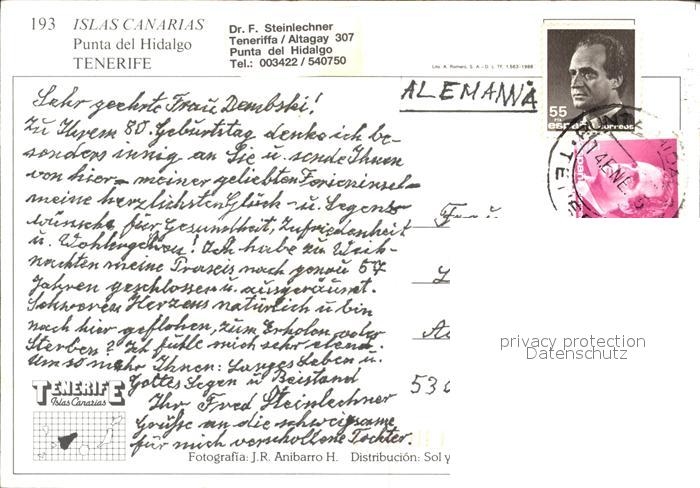 193 ISLAS CANARIAS
Punta del Hidalgo
TENERIFE
Dr. F. Steinlechner
Teneriffa / Altagay 307
Punta del Hidalgo
Tel.: 003422 / 540750
Lito. A. Romero, S. A. - D. L. TF. 1.563-1988
ALEMANIA
55
PTA
españa correos
Sehr geehrte Frau Dembski!
Zu Ihrem 80. Geburtstag denke ich be-
sonders innig an Sie u. sende Ihnen
von hier – meiner geliebten Ferieninsel –
meine herzlichsten Glück- u. Segens-
wünsche für Gesundheit, Zufriedenheit
u. Wohlergehen! Ich habe zu Weih-
nachten meine Praxis nach genau 57
Jahren geschlossen u. ausgeräumt.
Schweren Herzens natürlich u bin
nach hier geflohen, zum Erholen oder
Sterben? Ich fühle mich sehr elend.
Um so mehr Ihnen: Langes Leben u.
Gottes Segen u Beistand
Ihr Fred Steinlechner
Grüße an die schweigsame
für mich verschollene Tochter.
Frau
53
privacy protection
Datenschutz
TENERIFE
Islas Canarias
Fotografía: J.R. Anibarro H. Distribución: Sol y